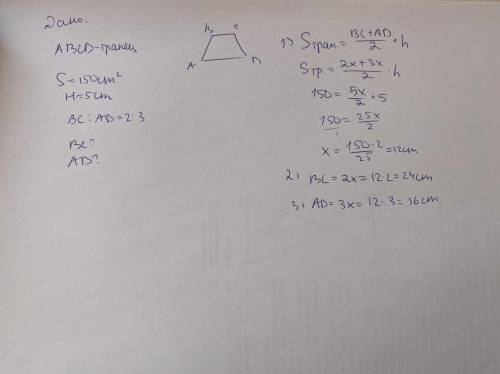 Дано:
ABCD-трапец
S=150cm²
H=5cm
BC:AD=2:3
BC?
AD?
B C
A D
1) Sтрап.= BC+AD/2 · h
Sтр.= 2x+3x/2 · h
150= 5x/2 · 5
150/1 = 25x/2
x = 150·2/25 =12cm
2) BC=2x=12·2=24cm
3) AD=3x=12·3=36cm